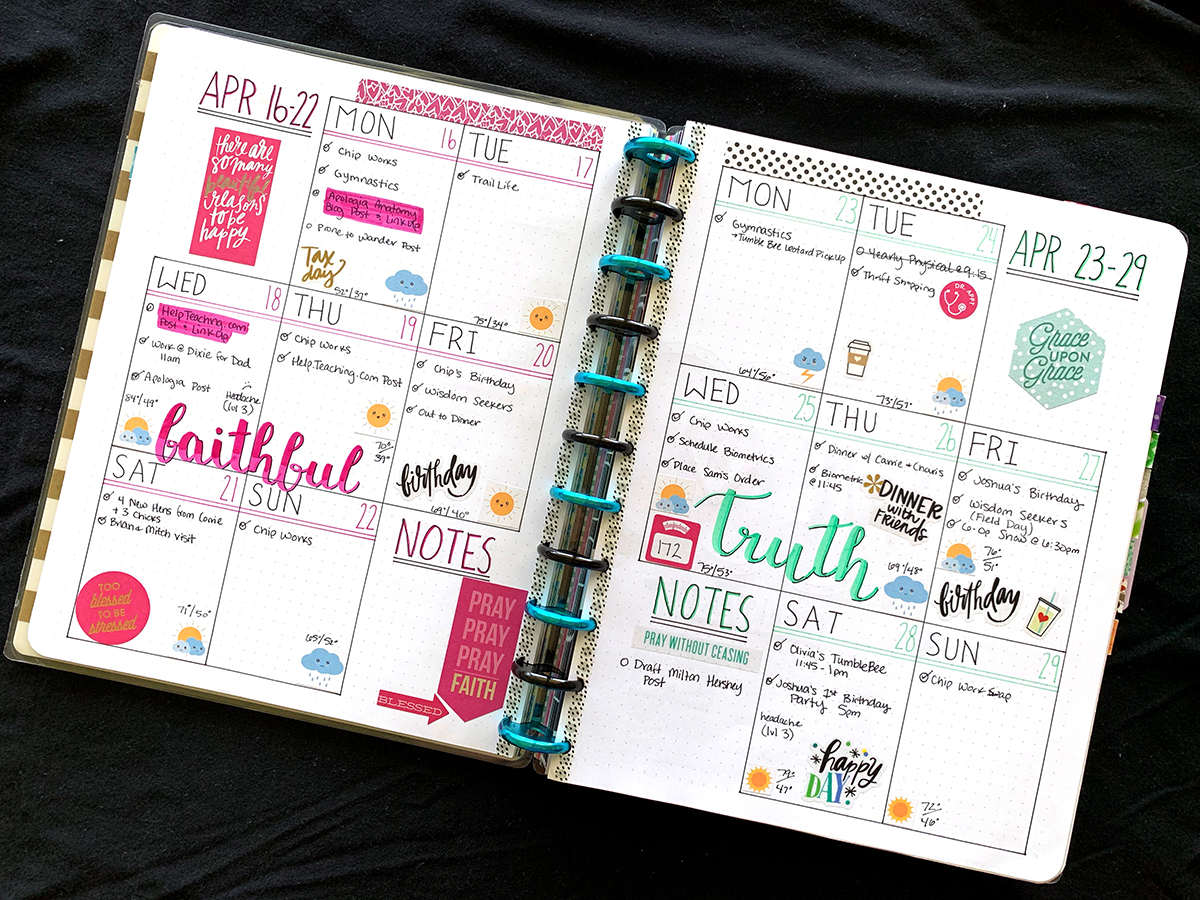 APR 16-22
there are
so many
beautiful
reasons
to be
happy
MON 16
Chip Works
Gymnastics
Apologia Anatomy
Blog Post & Linkup
Prone to Wander Post
Tax
day
52°/37°
TUE 17
Trail Life
75°/34°
WED 18
HelpTeaching.com
Post & Linkup
Work @ Dixie for Dad
11am
Apologia Post
Headache
(lvl 3)
84°/49°
faithful
THU 19
Chip Works
Help Teaching.com Post
70°/
39°
FRI 20
Chip's Birthday
Wisdom Seekers
Out to Dinner
birthday
69°/40°
SAT 21
4 New Hens from
+ 3 Chicks
Briana & Mitch visit
TOO
blessed
TO BE
stressed
71°/50°
SUN 22
Chip Works
65°/52°
NOTES
PRAY
PRAY
PRAY
FAITH
BLESSED
MON 23
Gymnastics
→Tumble Bee Leotard Pickup
64°/56°
TUE 24
Yearly Physical @ 9:15
Thrift Shopping
DR. APPT
73°/57°
APR 23-29
Grace
UPON
Grace
WED 25
Chip Works
Schedule Biometrics
Place Sam's Order
172
75°/53°
truth
THU 26
Dinner w/ Carrie & Charis
Biometric
@ 11:45
DINNER
with
FRIENDS
69°/48°
FRI 27
Joshua's Birthday
Wisdom Seekers
(Field Day)
Co-Op Show @ 6:30pm
76°
51°
birthday
NOTES
PRAY WITHOUT CEASING
Draft Milton Hershey
Post
SAT 28
Olivia's TumbleBee
11:45 - 1pm
Joshua's 1st Birthday
Party 5pm
headache
(lvl 3)
79°
47°
happy
DAY
SUN 29
Chip Work Swap
72°
46°